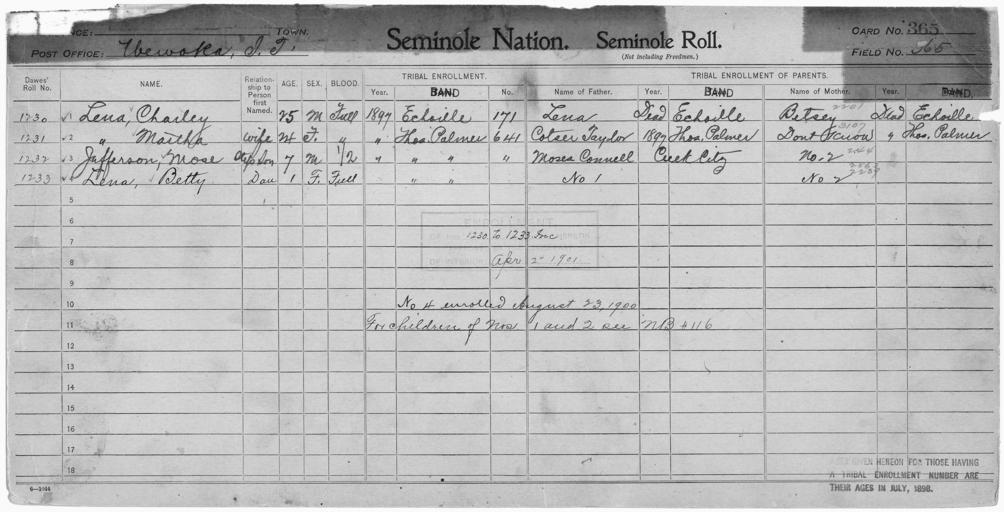 NCE: TOWN.
POST OFFICE: Wewoka, I. T.
Seminole Nation. Seminole Roll.
(Not including Freedmen.)
CARD NO. 365
FIELD NO. 365
Dawes' Roll No. NAME. Relationship to Person first Named. AGE. SEX. BLOOD. TRIBAL ENROLLMENT. TRIBAL ENROLLMENT OF PARENTS.
Year. BAND No. Name of Father. Year. BAND Name of Mother. Year. BAND.
1230 1 Lena, Charley 25 M Full 1897 Echoille 171 Lena Dead Echoille Betsey 2201 Dead Echoille
1231 2 " Martha wife 24 F. " " Thos. Palmer 641 Cotser Taylor 1897 Thos. Palmer Dont Know 3107 " Thos. Palmer
1232 3 Jefferson, Mose Step Son 7 M 1/2 " " " " Moses Connell Creek Citz No. 2
1233 4 Lena, Betty Dau 1 F. Full " " No 1 No 2
5
6
ENROLLMENT
7 1230 To 1233 Inc
8 OF INTERIOR Apr 2 - 1901
9
10 No 4 enrolled August 23, 1900
11 For children of Nos 1 and 2 see NB # 116
12
13
14
15
16
17 GIVEN HEREON FOR THOSE HAVING
18 A TRIBAL ENROLLMENT NUMBER ARE
THEIR AGES IN JULY, 1898.